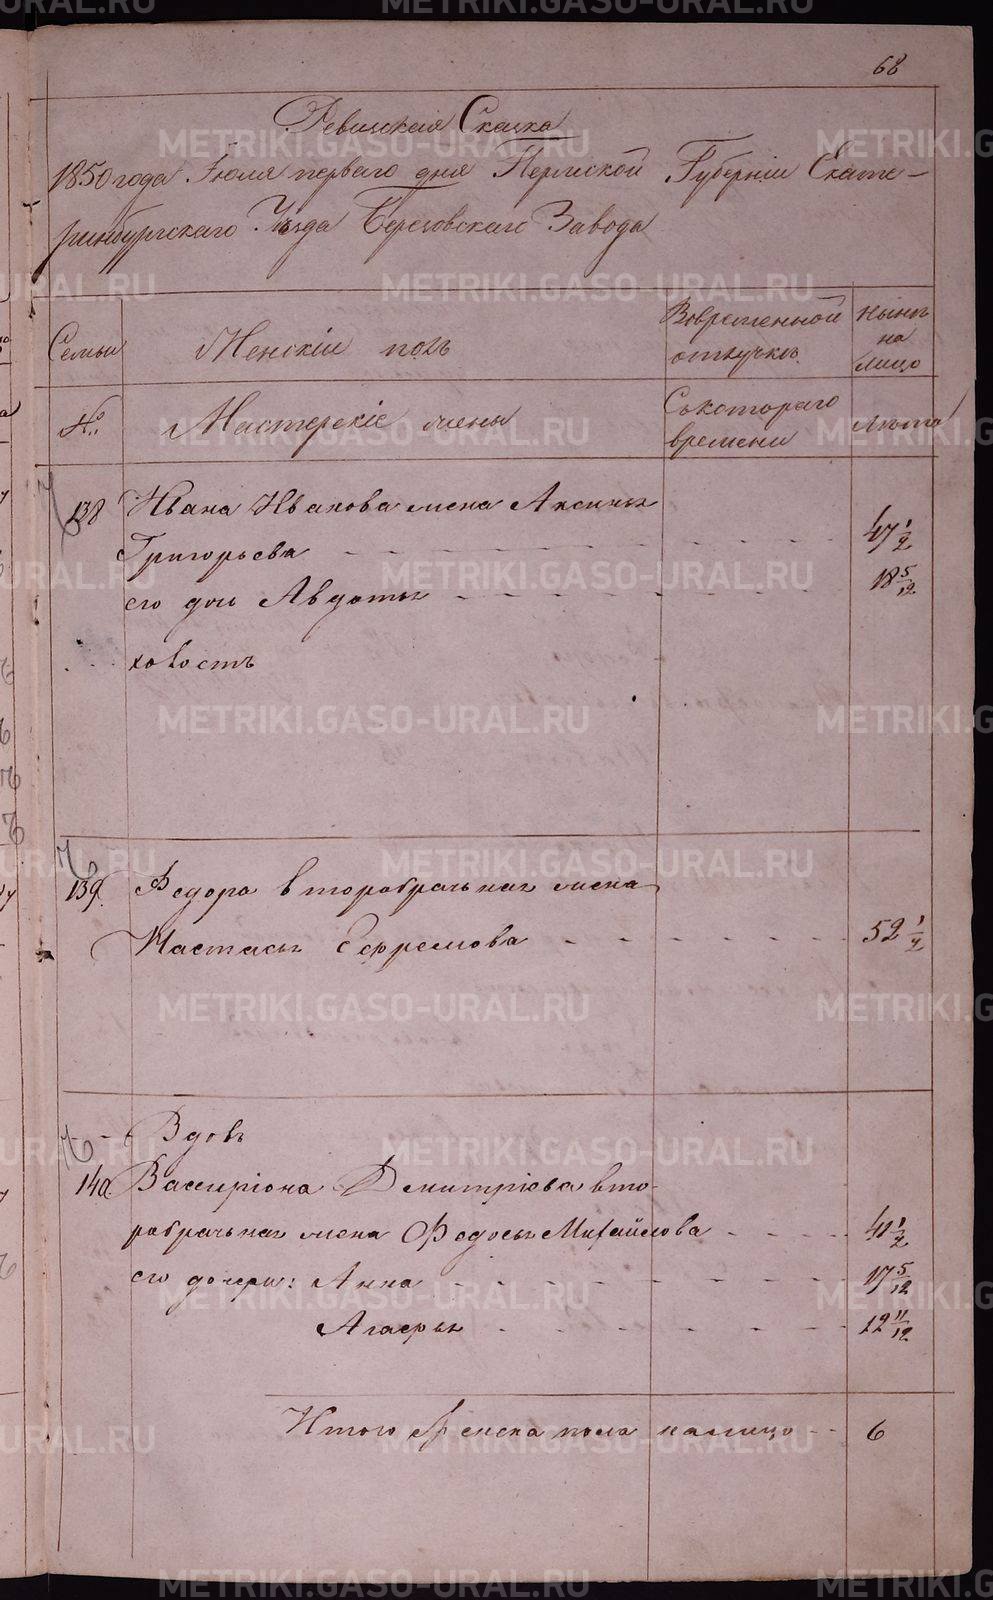 68
Ревизская Сказка
1850 года Июля первого дня Пермской Губернiи Екате-
ринбургскаго Уезда Березовскаго Завода
Семьи
Женскiй полъ
Вовременной
отлучке
ныне
на
лицо
№.
Мастерскiе жены
Съкотораго
времени
лета
138
Ивана Иванова жена Аксинья
Григорьева
47 1/2
его дочь Авдотья
18 5/12
139.
Федора второбрачная жена
Настасья Ефремова
52 1/2
Вдовы
140.
Вассирiона Дмитрiева вто-
робрачная жена Федосья Михайлова
41 1/2
его дочери: Анна
17 5/12
Агафья
12 11/12
Итого женска пола налицо
6
METRIKI.GASO-URAL.RU